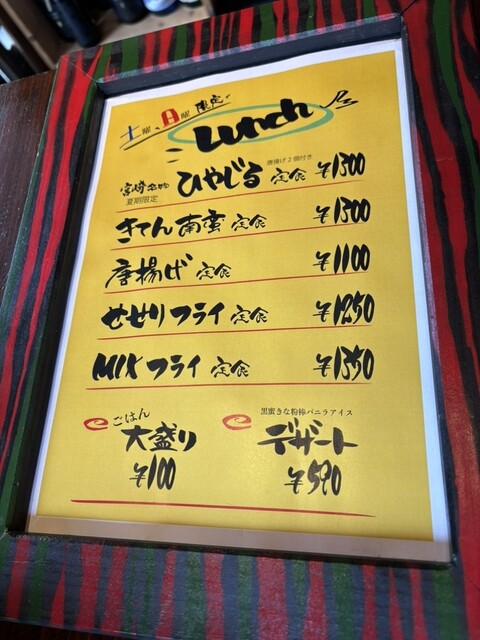 土曜、日曜 限定!
Lunch
唐揚げ2個付き
宮崎名物 ひやじる 定食 ¥1300
夏期限定
きてん 南蛮 定食 ¥1300
唐揚げ 定食 ¥1100
せせり フライ 定食 ¥1250
MIX フライ 定食 ¥1350
ごはん
大盛り
¥100
黒蜜きな粉棒バニラアイス
デザート
¥590